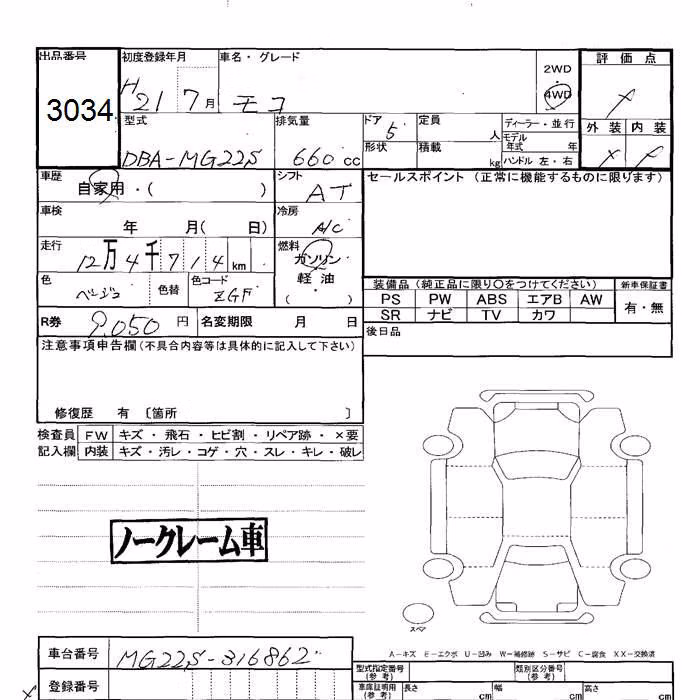 出品番号 初度登録年月 車名・グレード 評価点
3034 H21 7月 モコ 2WD
4WD
外装 内装
型式 排気量 ドア 5 定員 人 ディーラー・並行
DBA-MG22S 660cc 形状 積載 kg モデル年式 年
ハンドル 左・右
車歴 シフト セールスポイント (正常に機能するものに限ります)
自家用・( ) AT
車検 冷房
年 月( 日) A/C
走行 燃料
12万4千714km ガソリン
軽油
( ・ )
色 色替 色コード 装備品 (純正品に限り○をつけてください) 新車保証書
ベージュ ZGF PS PW ABS エアB AW 有・無
SR ナビ TV カワ
R券 9,050円 名変期限 月 日 後日品
注意事項申告欄(不具合内容等は具体的に記入して下さい)
修復歴 有 〔箇所 〕
検査員 FW キズ・飛石・ヒビ割・リペア跡・×要
記入欄 内装 キズ・汚レ・コゲ・穴・スレ・キレ・破レ
ノークレーム車
スペア
A-キズ E-エクボ U-凹み W-補修跡 S-サビ C-腐食 XX-交換済
車台番号 MG22S-316862 型式指定番号(参考) 類別区分番号(参考)
登録番号 車庫証明用(参考) 長さ cm 幅 cm 高さ cm